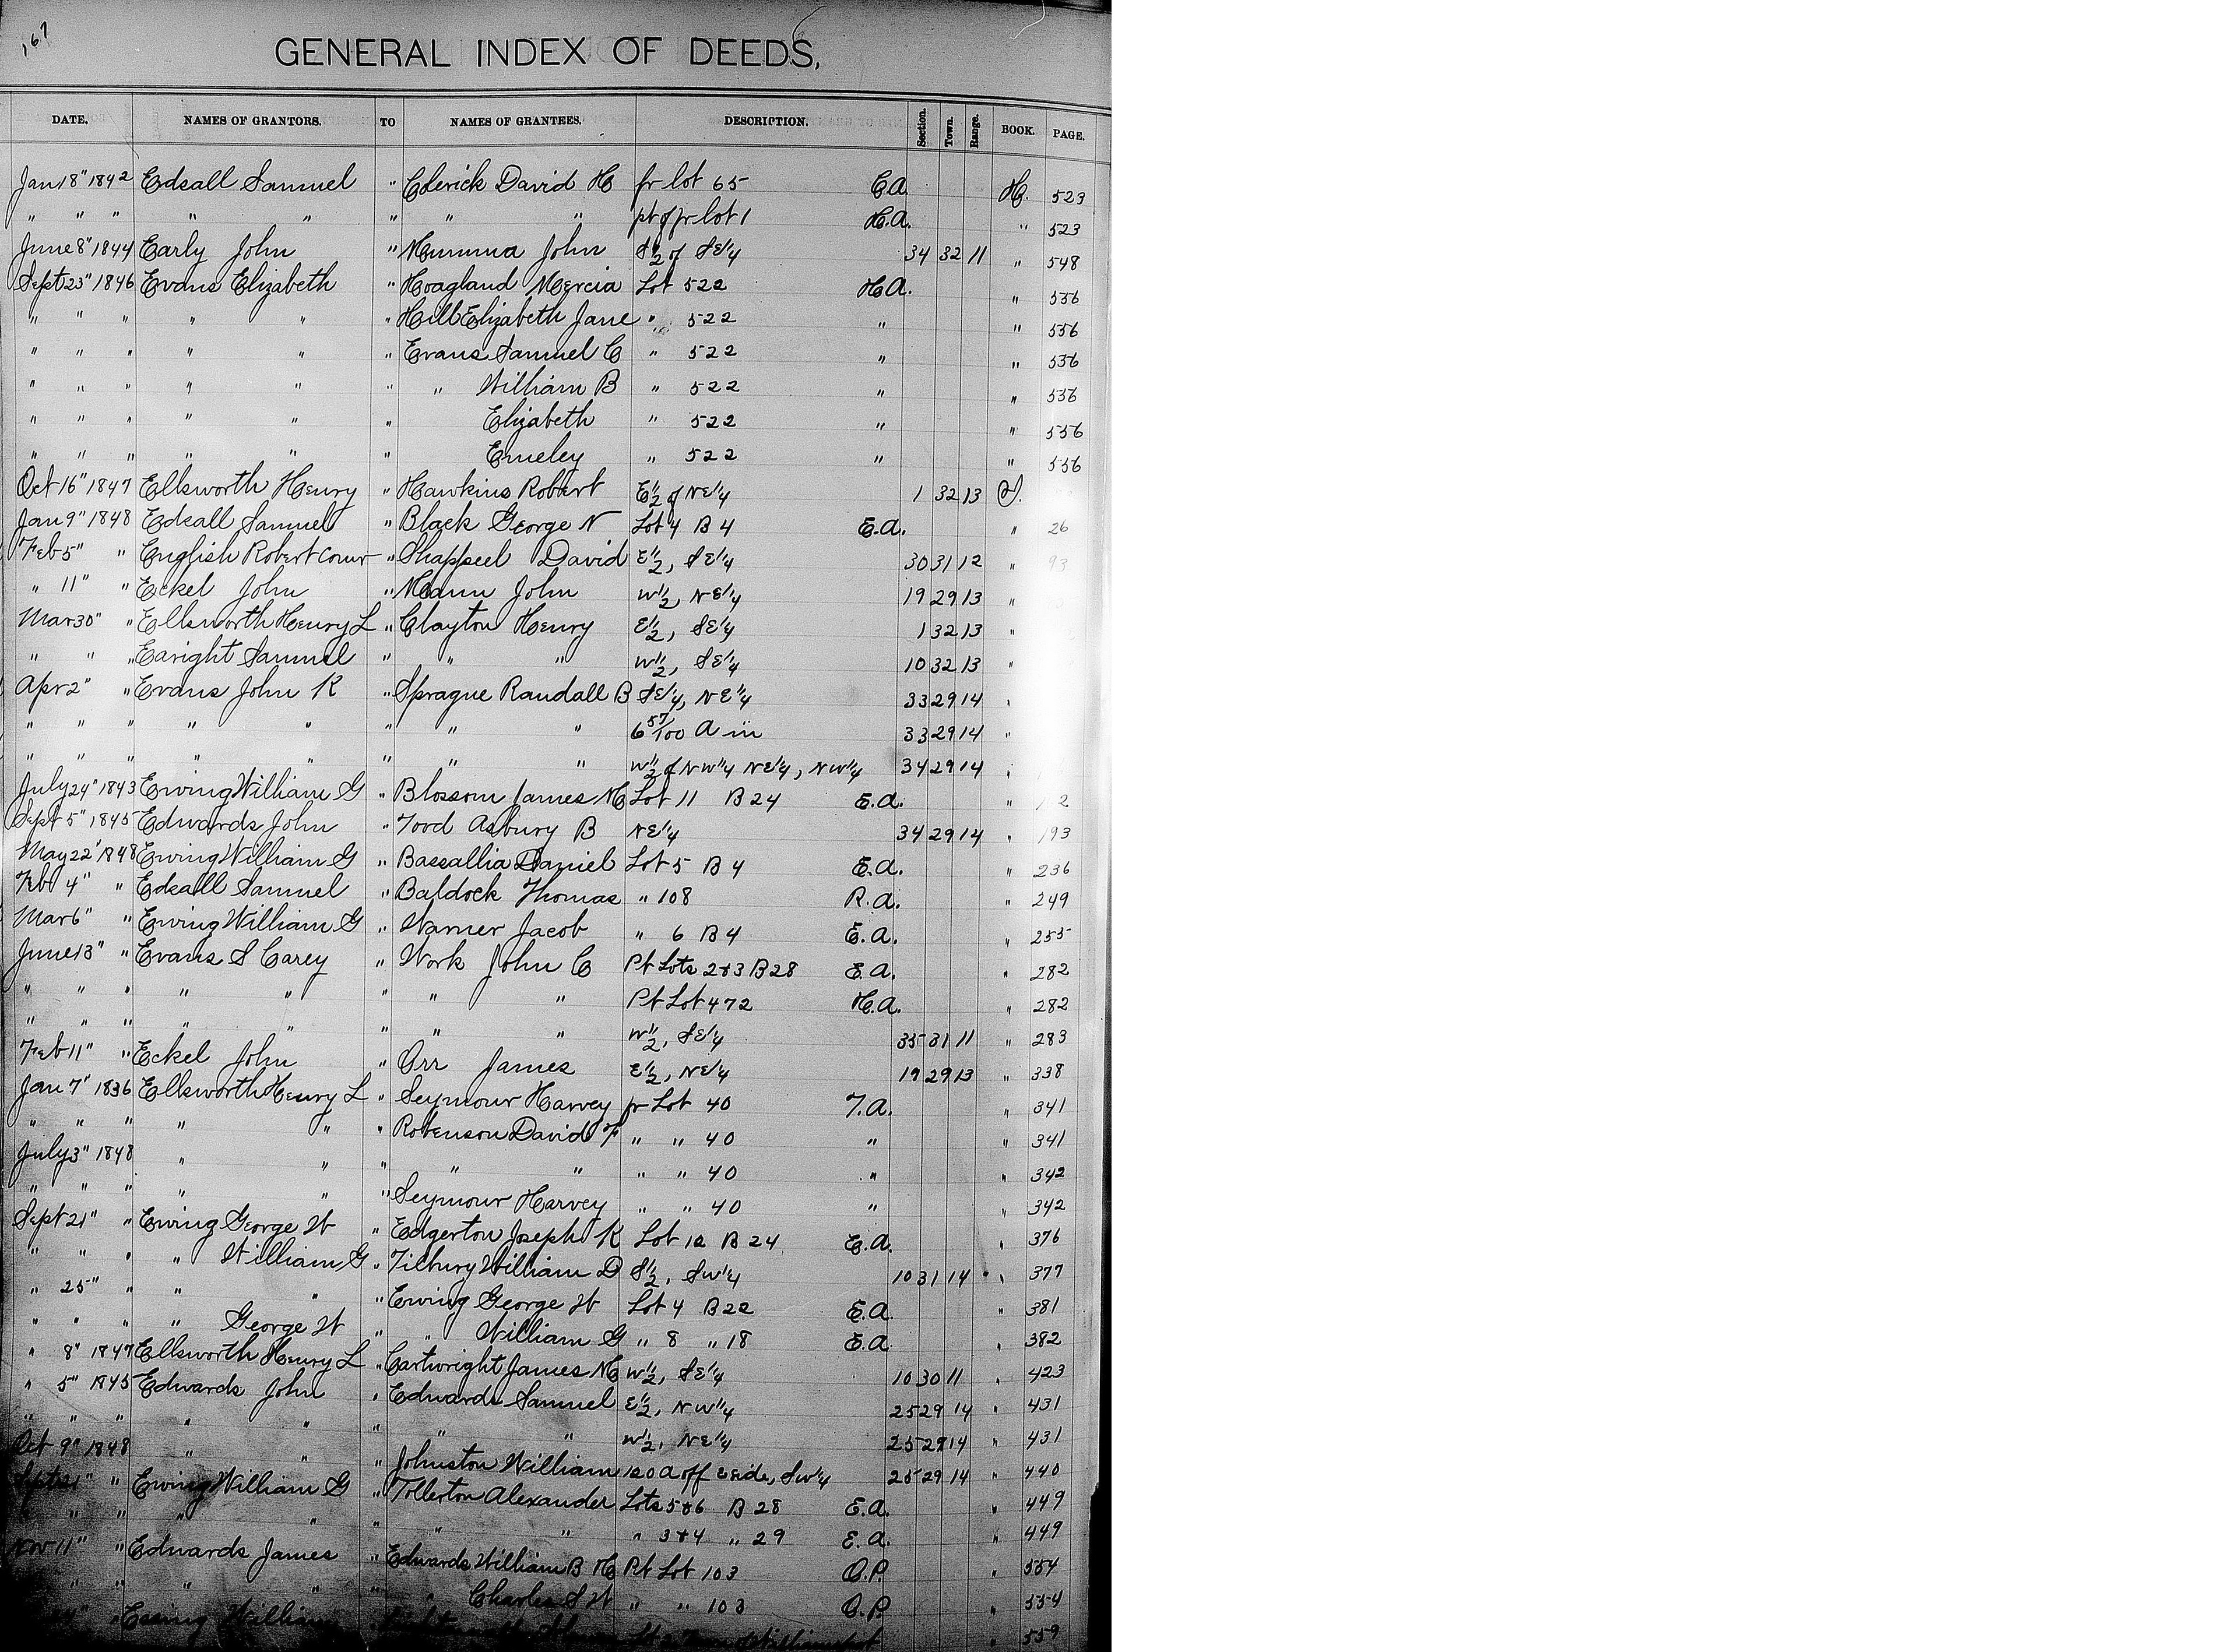 167
GENERAL INDEX OF DEEDS.
DATE. NAMES OF GRANTORS. TO NAMES OF GRANTEES. DESCRIPTION. Section. Town. Range. BOOK. PAGE.
Jan 18" 1842 Edsall Samuel " Colerick David H fr lot 65 C.A. H. 523
" " " " " " " " pt of fr lot 1 H.A. " 523
June 8" 1844 Early John " Mumma John S 1/2 of SE 1/4 34 32 11 " 548
Sept 23" 1846 Evans Elizabeth " Hoagland Mercia Lot 522 H.A. " 556
" " " " " " Hill Elizabeth Jane " 522 " " 556
" " " " " " Evans Samuel C " 522 " " 556
" " " " " " " William B " 522 " " 556
" " " " " " Elizabeth " 522 " " 556
" " " " " " Emeley " 522 " " 556
Oct 16" 1847 Ellsworth Henry " Hawkins Robert E 1/2 of NE 1/4 1 32 13
Jan 9" 1848 Edsall Samuel " Black George N Lot 4 B 4 E.A. " 26
Feb 5" " English Robert Comr " Shappeel David E 1/2, SE 1/4 30 31 12 " 93
" 11" " Eckel John " Mann John W 1/2, NE 1/4 19 29 13 "
Mar 30" " Ellsworth Henry L " Clayton Henry E 1/2, SE 1/4 1 32 13 "
" " " Earight Samuel " " " W 1/2, SE 1/4 10 32 13 "
Apr 2" " Evans John K " Sprague Randall B SE 1/4, NE 1/4 33 29 14 "
" " " " " " " " 6 57/100 A in 33 29 14 "
" " " " " " " " W 1/2 of NW 1/4 NE 1/4, NW 1/4 34 29 14 "
July 24" 1843 Ewing William G " Blossom James M Lot 11 B 24 E.A. "
Sept 5" 1845 Edwards John " Todd Asbury B NE 1/4 34 29 14 " 193
May 22" 1848 Ewing William G " Bassallia Daniel Lot 5 B 4 E.A. " 236
Feb 4" " Edsall Samuel " Baldock Thomas " 108 R.A. " 249
Mar 6" " Ewing William G " Warner Jacob " 6 B 4 E.A. " 255
June 13" " Evans S Carey " Work John C Pt Lots 2&3 B 28 E.A. " 282
" " " " " " " " Pt Lot 472 H.A. " 282
" " " " " " " " W 1/2, SE 1/4 35 31 11 " 283
Feb 11" " Eckel John " Orr James E 1/2, NE 1/4 19 29 13 " 338
Jan 7" 1836 Ellsworth Henry L " Seymour Harvey fr Lot 40 T.A. " 341
" " " " " " Robenson David F " " 40 " " 341
July 3" 1848 " " " " " " " 40 " " 342
" " " " " " Seymour Harvey " " 40 " " 342
Sept 21" " Ewing George W " Edgerton Joseph K Lot 12 B 24 E.A. " 376
" " " " William G " Tilbury William D S 1/2, SW 1/4 10 31 14 " 377
" 25" " " " " Ewing George W Lot 4 B 22 E.A. " 381
" " " " George W " " William G " 8 " 18 E.A. " 382
" 8" 1847 Ellsworth Henry L " Cartwright James M W 1/2, SE 1/4 10 30 11 " 423
" 5" 1845 Edwards John " Edwards Samuel E 1/2, NW 1/4 25 29 14 " 431
" " " " " " " " W 1/2, NE 1/4 25 29 14 " 431
Oct 9" 1848 " " " Johnston William 120 A off E side, SW 1/4 25 29 14 " 440
Sept 21" " Ewing William G " Tollerton Alexander Lots 5&6 B 28 E.A. " 449
" " " " " " " " " 3&4 " 29 E.A. " 449
Nov 11" " Edwards James " Edwards William B H Pt Lot 103 O.P. " 554
" " " " " " Charles S W " " 103 O.P. " 554
" Ewing William Lot " 559